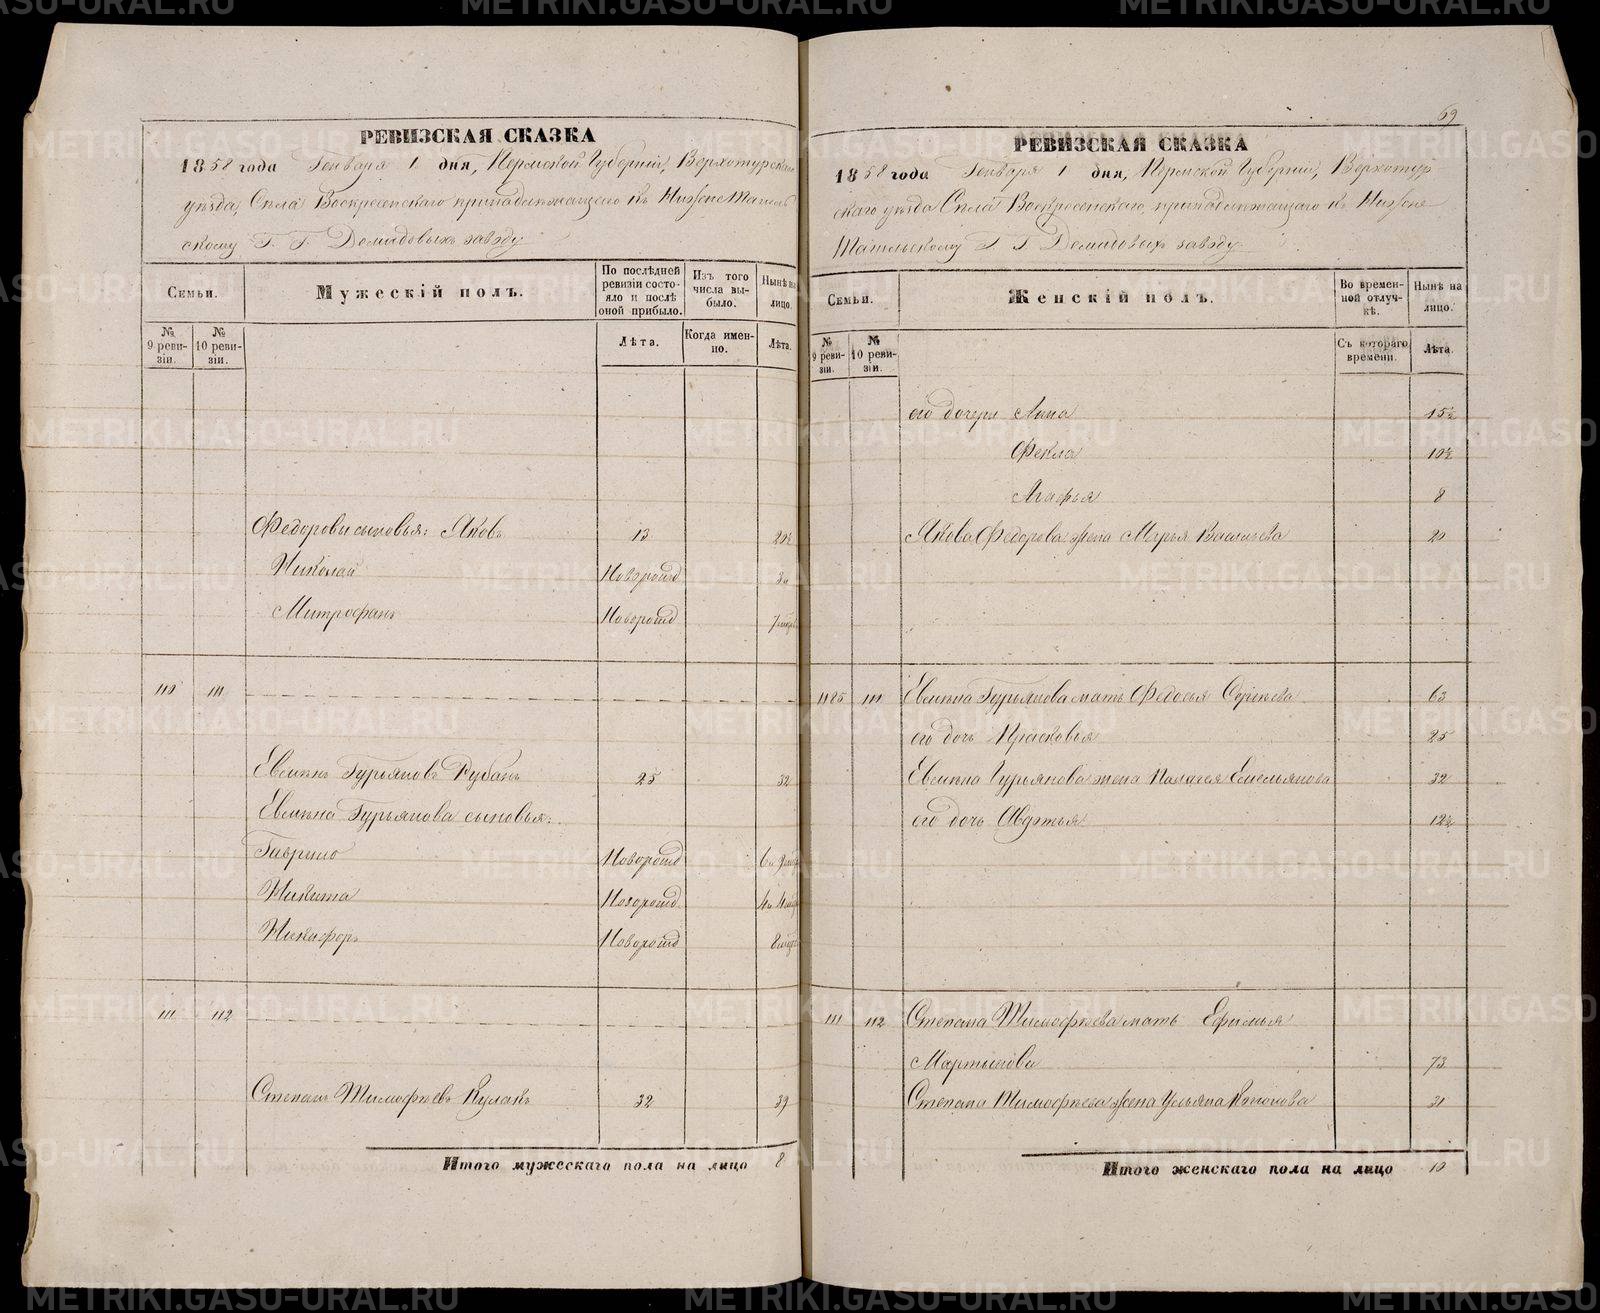 РЕВИЗСКАЯ СКАЗКА
1858 года Генваря 1 дня, Пермской Губерніи, Верхотурскаго
уѣзда, Села Воскресенскаго принадлежащаго къ Нижне Тагиль
скому Г. Г. Демидовыхъ заводу
Семьи.
Мужескій полъ.
По послѣдней ревизіи состояло и послѣ оной прибыло.
Изъ того числа выбыло.
Нынѣ на лицо.
№ 9 ревизіи.
№ 10 ревизіи.
Лѣта.
Когда именно.
Лѣта.
Федоровы сыновья: Яковъ 13 20½
Николай Новорожд
Митрофанъ Новорожд
110 111
Евсигнѣ Гурьяновъ Рубанъ 25 32
Гурьянова сыновья:
Гаврило Новорожд
Никита Новорожд
Никифоръ Новорожд
111 112
Степанъ Тимофѣевъ Кулакъ 32 39
Итого мужескаго пола на лицо 8
69
РЕВИЗСКАЯ СКАЗКА
1858 года Генваря 1 дня, Пермской Губерніи, Верхотур
скаго уѣзда Села Воскресенскаго, принадлежащаго къ Нижне
Тагильскому Г Г Демидовыхъ заводу
Семьи.
Женскій полъ.
Во временной отлучкѣ.
Нынѣ на лицо.
№ 9 ревизіи.
№ 10 ревизіи.
Съ котораго времени.
Лѣта.
его дочери Анна 15½
Фекла 10½
Агафья 8
Якова Федорова жена Марья Васильева 20
111 Гурьянова мать Федосья Сергѣева 63
его дочь Прасковья 25
Гурьянова жена Палагея Емельянова 32
его дочь Авдотья 12½
111 112 Степана Тимофѣева мать Ефимья
Мартынова 73
Степана Тимофѣева жена Ульяна Кононова 31
Итого женскаго пола на лицо 10
METRIKI.GASO-URAL.RU